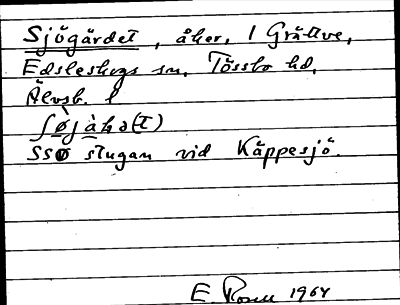 Sjögärdet, åker, 1 Grättve,
Edsleskogs sn, Tössbo hd,
Älvsb. l
SSO stugan vid Käppesjö.
E. Rosell 1964